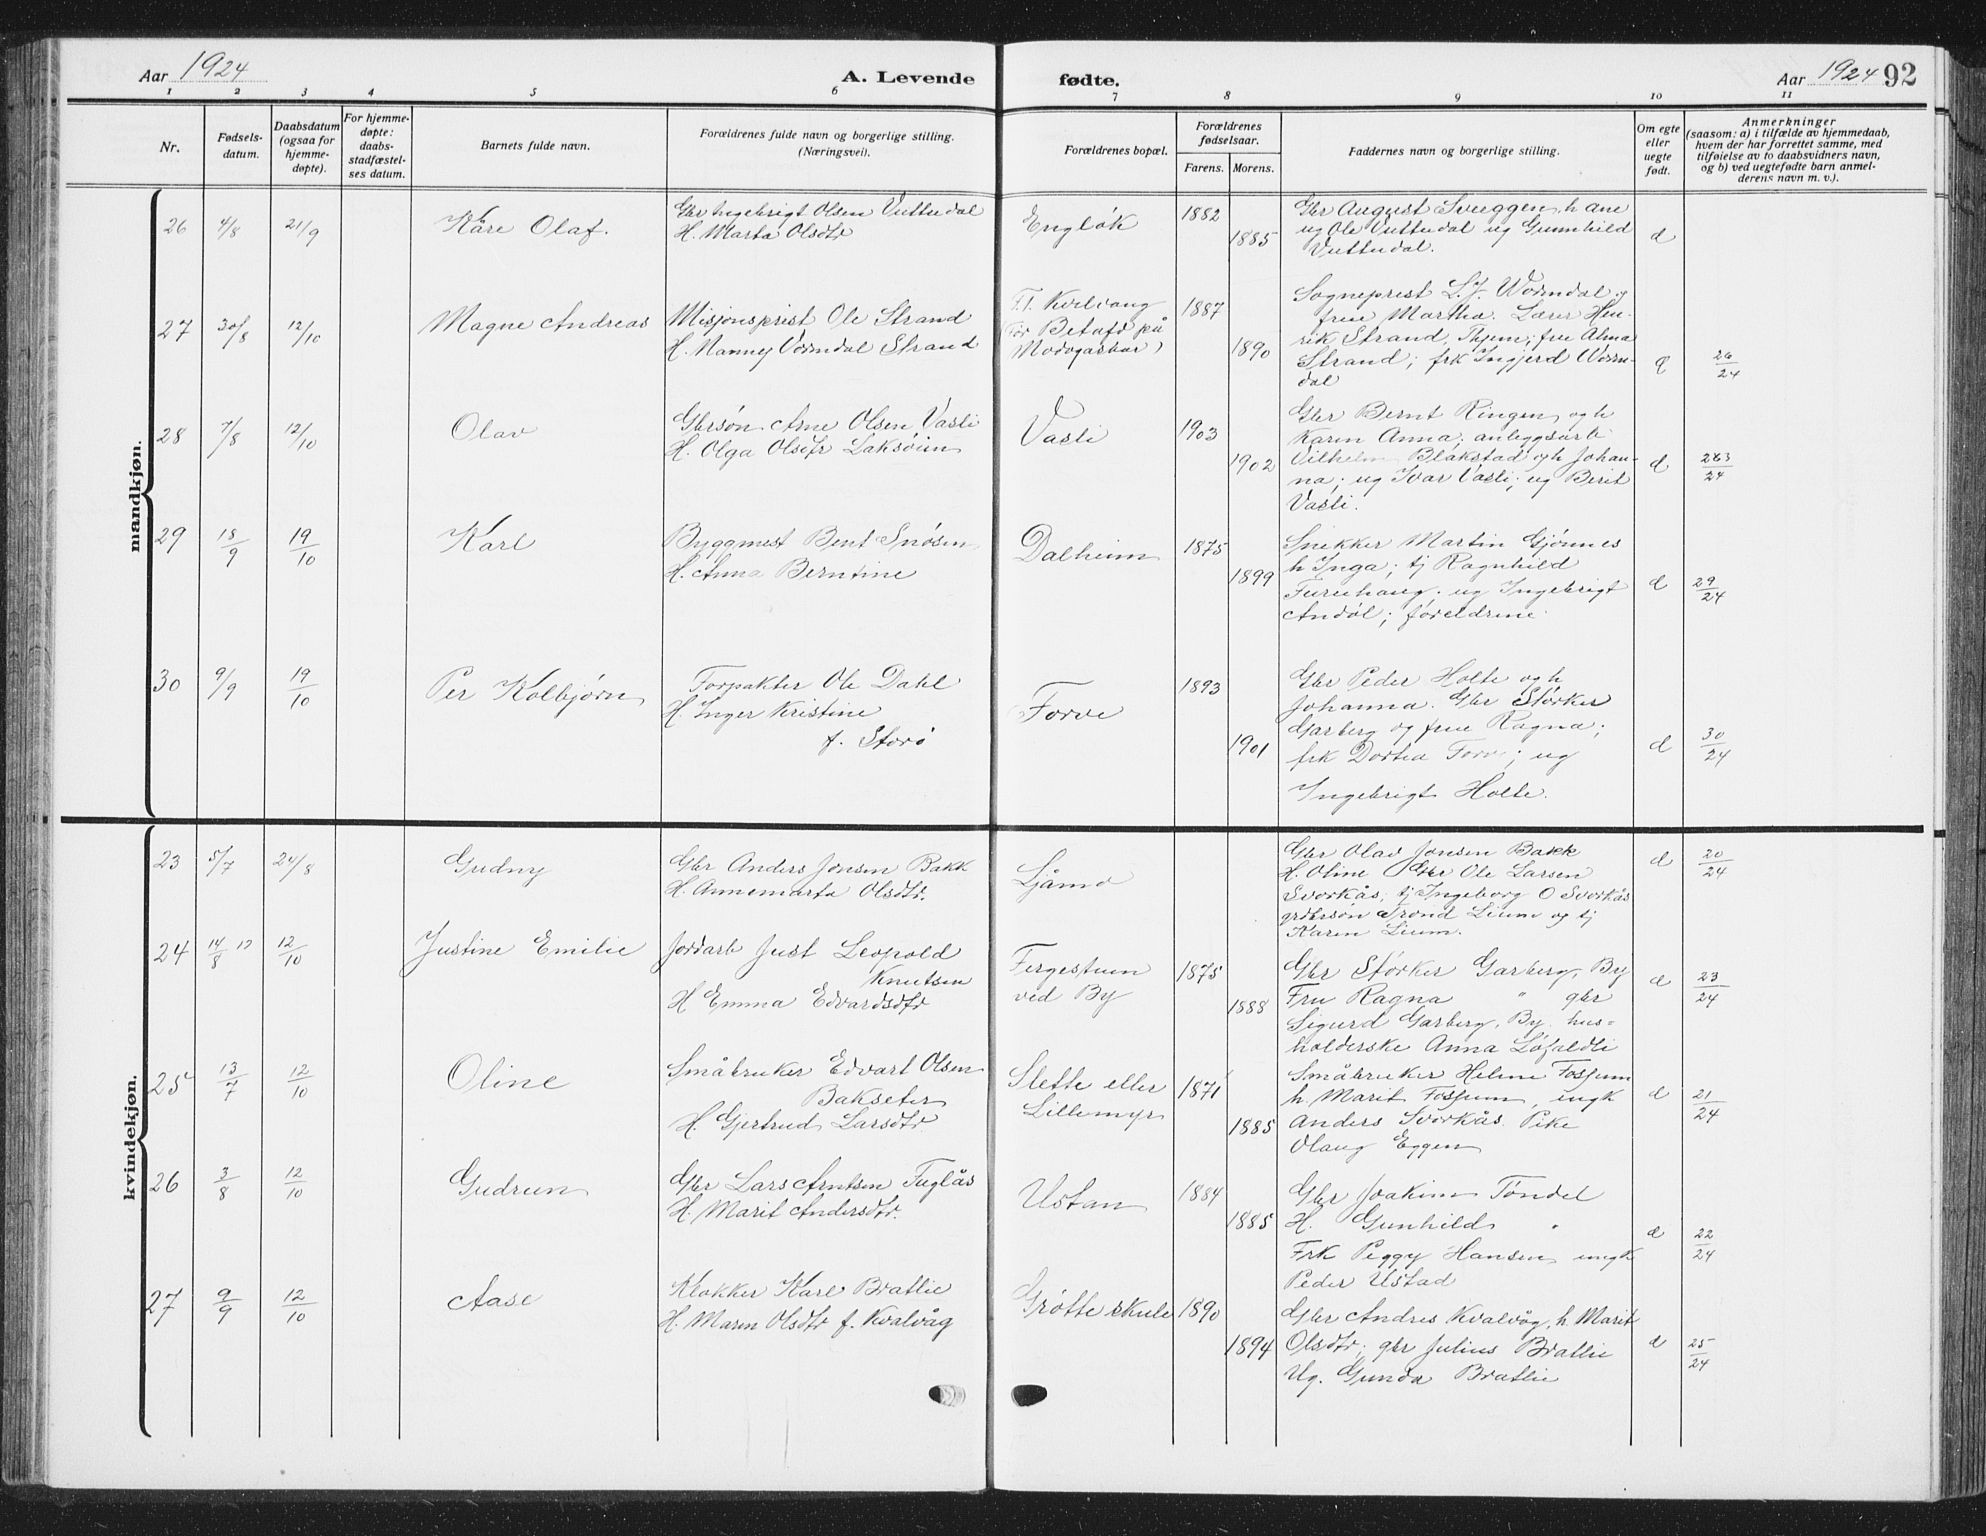 Aar 1924
A. Levende
fødte.
Aar 1924 92
1 2 3 4 5 6 7 8 9 10 11
Nr.
Fødsels-
datum.
Daabsdatum
(ogsaa for
hjemme-
døpte).
For hjemme-
døpte:
daabs-
stadfæstel-
ses datum.
Barnets fulde navn.
Forældrenes fulde navn og borgerlige stilling.
(Næringsvei).
Forældrenes bopæl.
Forældrenes
fødselsaar.
Farens. Morens.
Faddernes navn og borgerlige stilling.
Om egte
eller
uegte
født.
Anmerkninger
(saasom: a) i tilfælde av hjemmedaab,
hvem der har forrettet samme, med
tilføielse av to daabsvidners navn,
og b) ved uegtefødte barn anmel-
derens navn m. v.).
mandkjøn.
26 4/8 21/9 Kåre Olaf.
Gbr Ingebrigt Olsen Vuttudal
H. Marta Olsdtr
Engløk
1882
1885
Gbr August Svueggen, h ane
ug Ole Vuttudal ug Gunnhild
Vuttudal.
d
27 30/8 12/10 Magne Andreas
Misjonsprest Ole Strand
H. Nanney Vormdal Strand
F.t. Kvelvang
(for Betafo på
Madagaskar)
1887
1890
Sogneprest L. J. Wormdal og
frue Martha. Lærer Hen-
rik Strand, Thjem; frue Alma
Strand; frk Ingjerd Worm-
dal
d
26/24
28 7/8 12/10 Olav
Gbrsøn Arne Olsen Vasli
H. Olga Olsdtr Laksøien
Vasli
1903
1902
Gbr Bernt Ringen og h
Karen Anna; anleggsarb
Vilhelm Blokstad og h Johan-
na; ug Ivar Vasli; ug Berit
Vasli.
d
29 18/9 19/10 Karl
Byggmest Bent Snøsen
H. Anna Berntine
Dalheim
1875
1899
Snekker Martin Gjønnes
h Inga; tj Ragnhild
Furuhaug; ug Ingebrigt
Andøl; foreldrene
d
29/24
30 9/9 19/10 Per Kolbjørn
Forpakter Ole Dahl
H. Inger Kristine
f. Storø
Forve
1893
1901
Gbr Peder Holte og h
Johanna. Gbr Størker
Garberg og frue Ragna;
frk Dortea Forve; ug
Ingebrigt Holte.
d
30/24
kvindekjøn.
23 5/7 24/8 Gudny
Gbr Anders Jonsen Bakk
H. Annemarta Olsdtr.
Ljåmo
Gbr Olav Jonsen Bakk
H. Oline Gbr Ole Larsen
Svorkås, tj Ingeborg O Svorkås
grdbrsøn Trond Lium og tj
Karen Lium.
d
20/24
24 14/8 12 12/10 Justine Emilie
Jordarb Just Leopold
Knutsen
H Emma Edvardsdtr
Fergestuen
ved By
1875
1888
Gbr Størker Garberg, By
Fru Ragna " gbr
Sigurd Garberg, By. hus=
holderske Anna Løfaldli
d
23/24
25 13/7 12/10 Oline
Småbruker Edvart Olsen
Bakseter
H. Gjertrud Larsdtr
Slette eller
Lillemyr
1871
1885
Småbruker Helmer Fossum
h. Marit Fossum, ungk
Anders Svorkås. Pike
Olaug Eggen
d
21/24
26 3/8 12/10 Gudrun
Gbr Lars Arntsen Fuglås
H. Marit Andersdtr.
Ustan
1884
1885
Gbr Joakim Tøndel
H. Gunhild "
Frk Peggy Hansen ungk
Peder Ustad
d
22/24
27 9/9 12/10 Aase
Klokker Karl Bratlie
H. Maren Olsdtr f. Kvalvåg
Grøtte skule
1890
1894
Gbr Andres Kvalvåg, h. Marit
Olsdtr; gbr Julius Bratlie
Ug. Gunda Bratlie
d
25/24